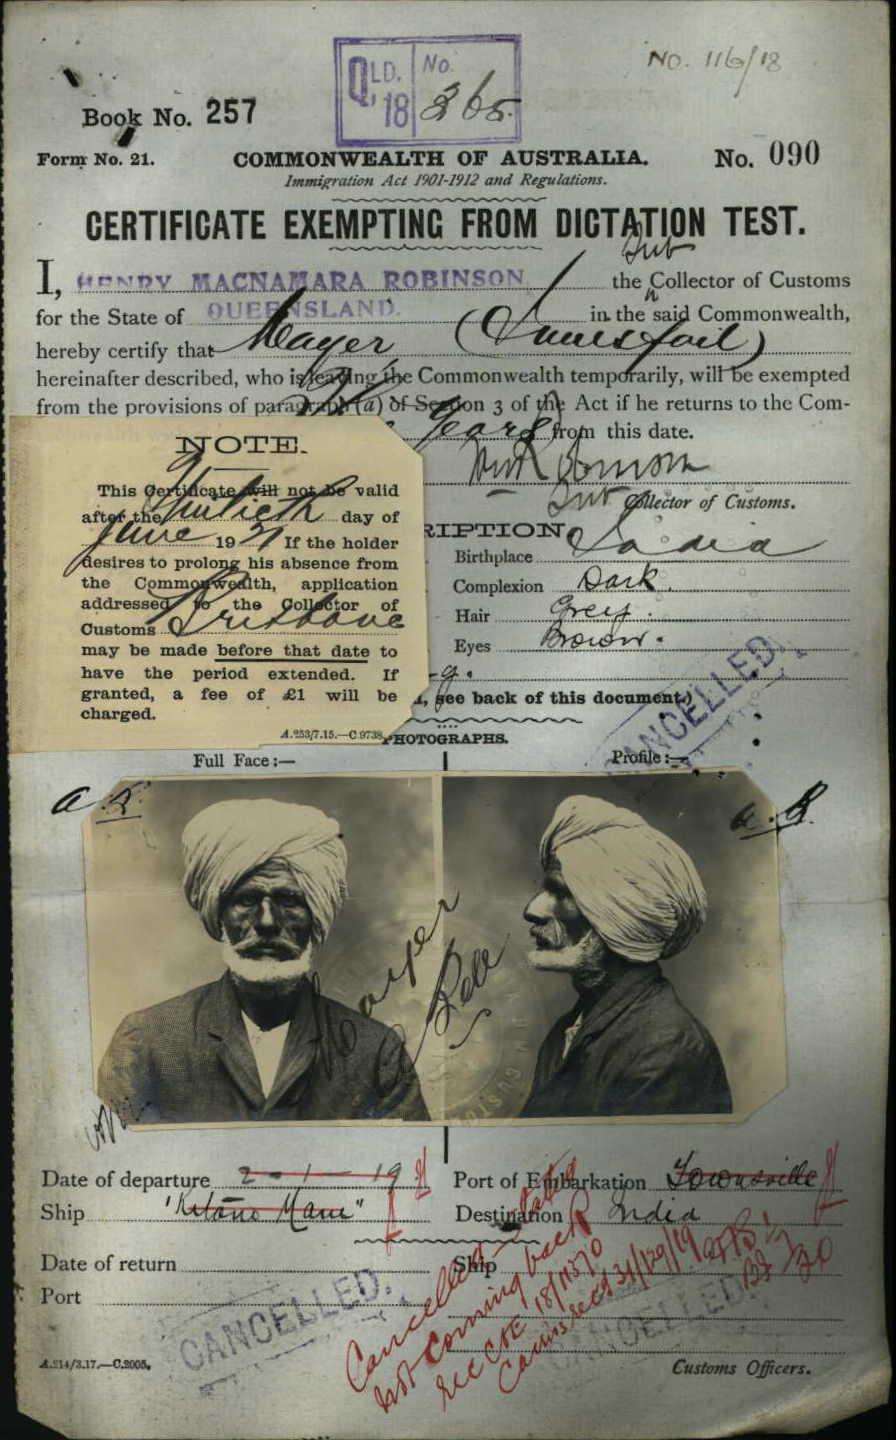 No. 116/18
QLD. 18 No. 265.
Book No. 257
Form No. 21. COMMONWEALTH OF AUSTRALIA. No. 090
Immigration Act 1901-1912 and Regulations.
CERTIFICATE EXEMPTING FROM DICTATION TEST.
Sub
I, HENRY MACNAMARA ROBINSON the Collector of Customs
for the State of QUEENSLAND. in the said Commonwealth,
hereby certify that (Innisfail)
hereinafter described, who is leaving the Commonwealth temporarily, will be exempted
from the provisions of paragraph (a) of Section 3 of the Act if he returns to the Com-
Years from this date.
Sub Collector of Customs.
NOTE.
This Certificate will not be valid
after the Thirtieth day of
June 1921 If the holder
desires to prolong his absence from
the Commonwealth, application
addressed to the Collector of
Customs Brisbane
may be made before that date to
have the period extended. If
granted, a fee of £1 will be
charged.
A.253/7.15.—C.9738.
RIPTION
Birthplace India
Complexion Dark.
Hair Grey.
Eyes Brown.
g.
, see back of this document.)
CANCELLED.
PHOTOGRAPHS.
Full Face:—
Profile:—
Date of departure 2-1-19 Port of Embarkation Townsville
Ship "Kitano Maru" Destination India
Date of return Ship
Port
CANCELLED.
CANCELLED.
Cancelled
not coming back
See CTE 18/
Cairns
A.214/3.17.—C.2005. Customs Officers.